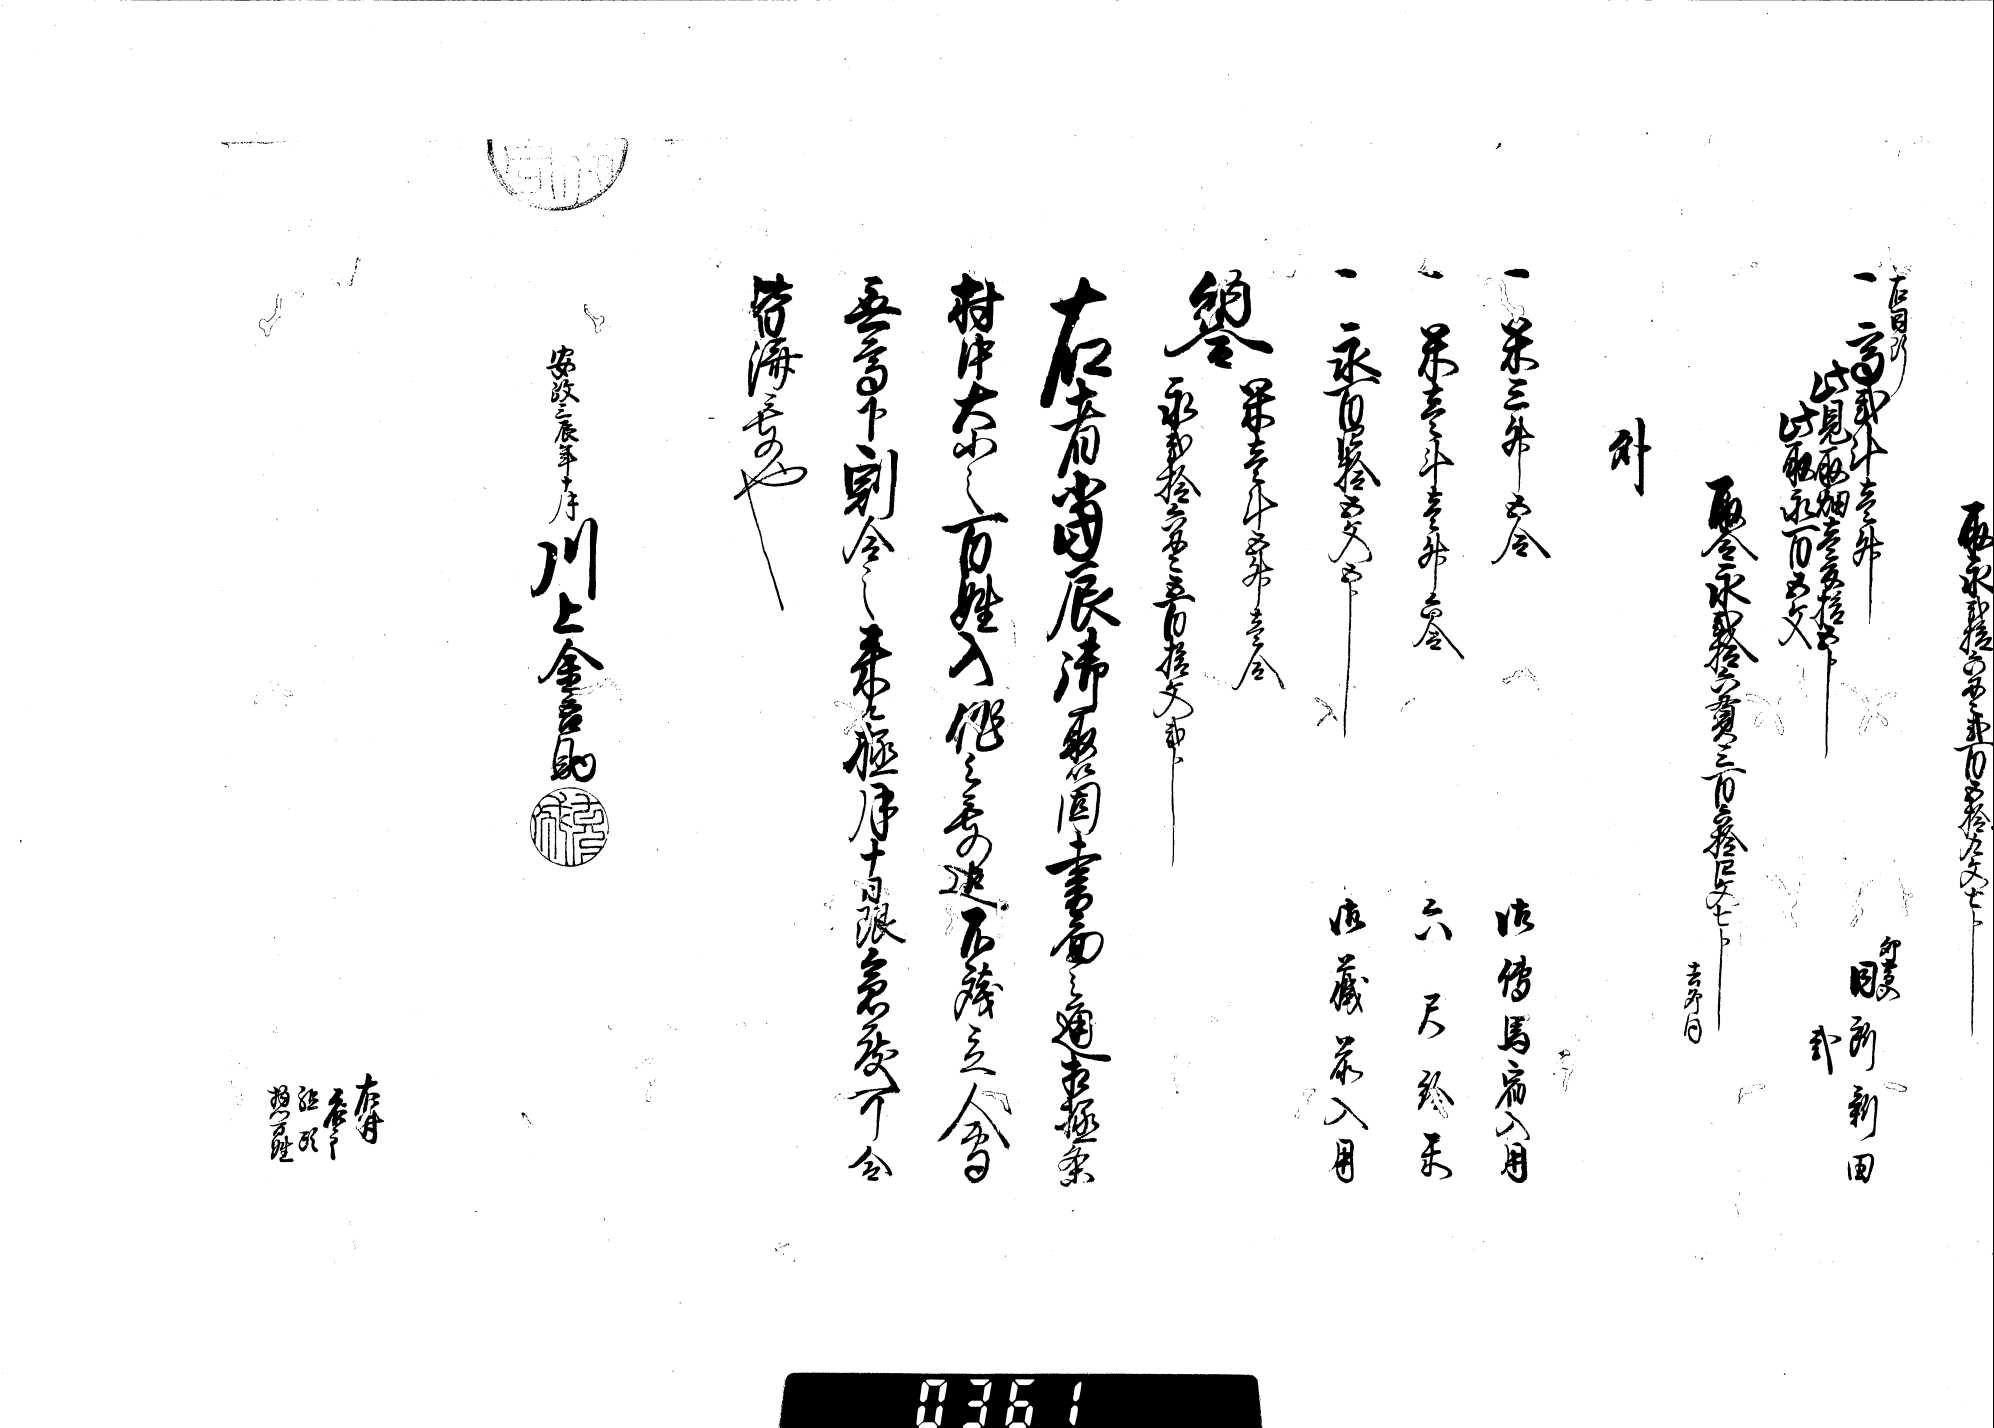 取永弐拾六貫弐百五拾九文七分
右同断
一高弐斗壱升
卯高入
同所新田
弐
此見取畑壱反拾五歩
此取永百五文
取合永弐拾六貫三百六拾四文七分
去卯同
外
一米三升五合
御伝馬宿入用
一米壱斗壱升六合
六尺給米
一永百拾五文五分
御蔵前入用
納合
米壱斗五升壱合
永弐拾六貫五百拾文弐分
右者当辰御取箇書面之通相極条
村中大小之百姓入作之者迄不残立合
無高下割合之来ル極月十日限急度可令
皆済者也
安政三辰年十月
川上金吾助
右村
名主
組頭
惣百姓
0361